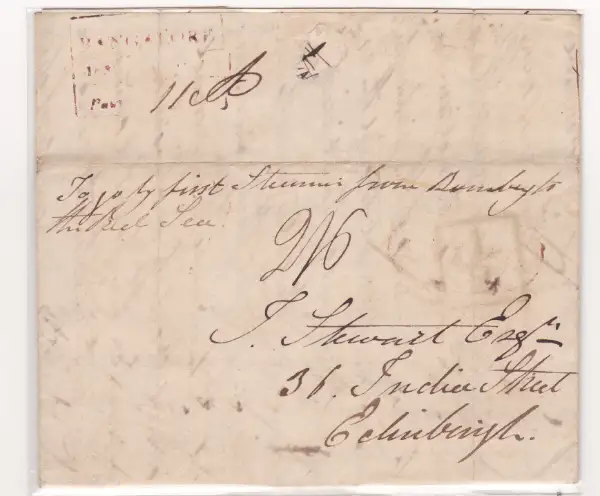 BANGALORE
Paid
To go by first Steamer from Bombay to
the Red Sea.
2/6
J. Stewart Esqr
36. India Street
Edinburgh.